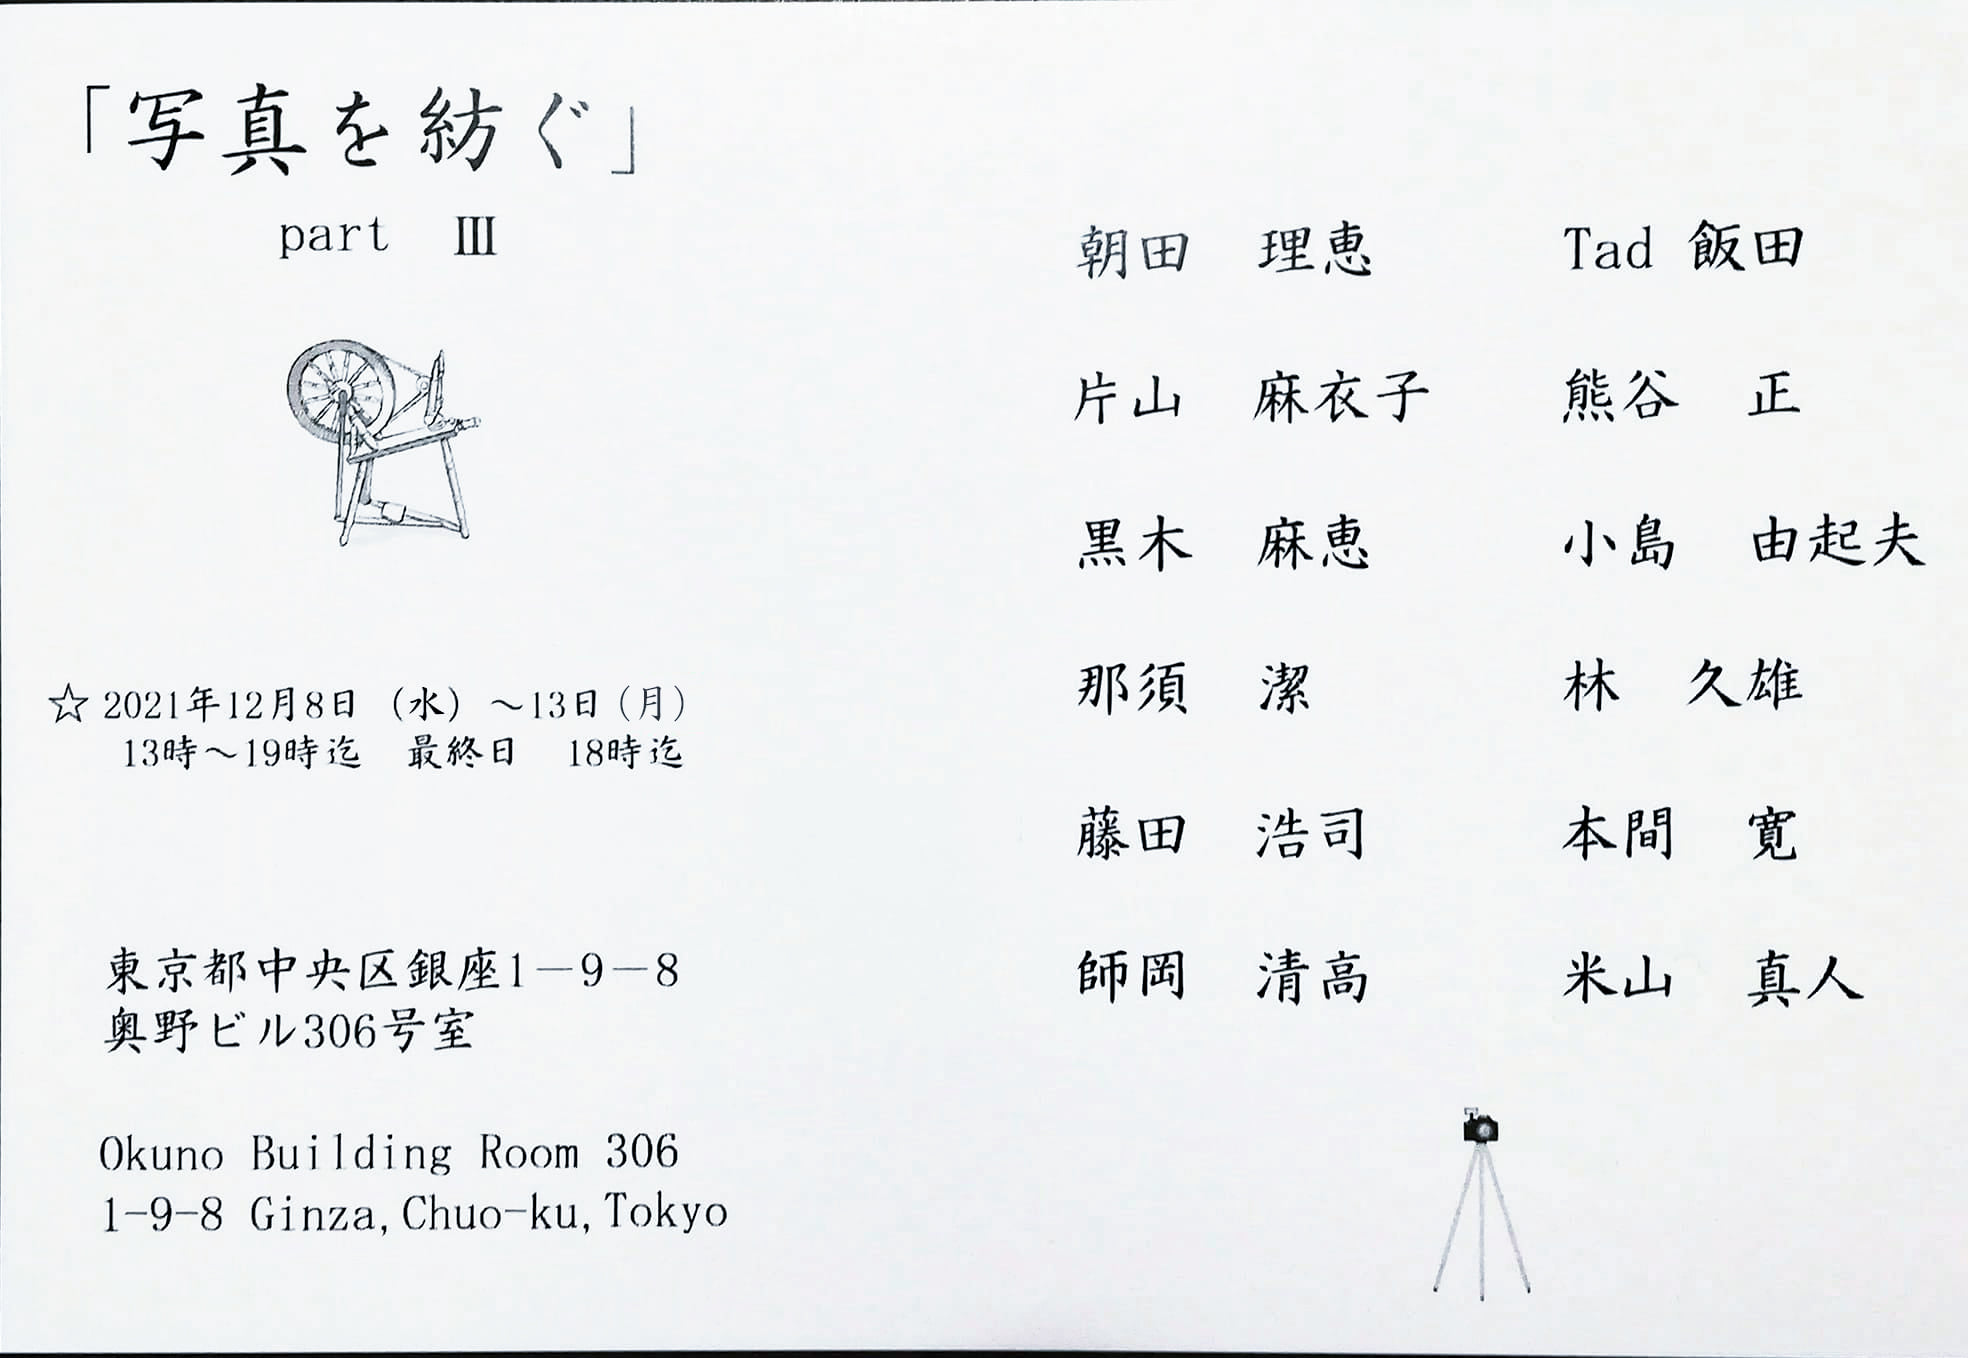 「写真を紡ぐ」
part Ⅲ
☆ 2021年12月8日 (水) ～13日(月)
13時～19時迄 最終日 18時迄
東京都中央区銀座1－9－8
奥野ビル306号室
Okuno Building Room 306
1-9-8 Ginza,Chuo-ku,Tokyo
朝田 理恵 Tad 飯田
片山 麻衣子 熊谷 正
黒木 麻恵 小島 由起夫
那須 潔 林 久雄
藤田 浩司 本間 寛
師岡 清高 米山 真人